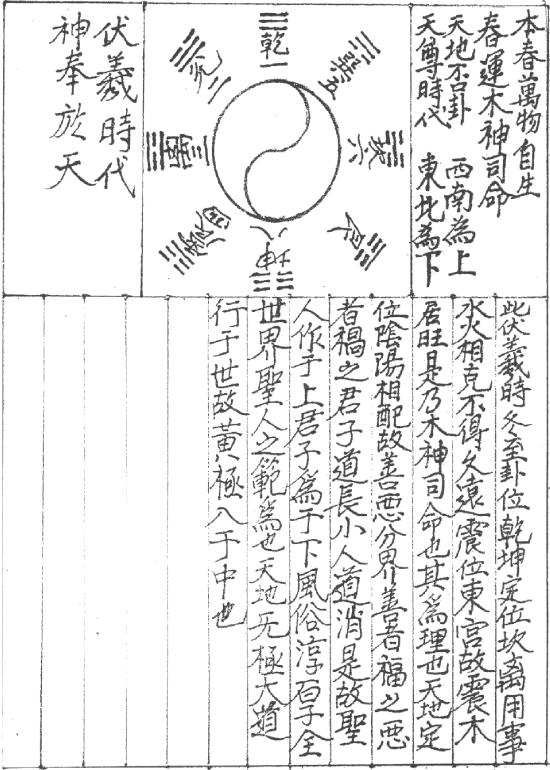 本春萬物自生
春運木神司命
天地不口卦　西南為上
天尊時代　東北為下
乾一
兌二
三
五
六
坤八
伏羲時代
神奉於天
此伏羲時冬至卦位乾坤定位坎离用事
水火相克不得久遠震位東宮故震木
居旺是乃木神司命也其為理也天地定
位陰陽相配故善惡分界善者福之惡
者禍之君子道長小人道消是故聖
人作于上君子為于下風俗淳
世界聖人之範為也天地无極大道
行于世故黃極入于中也